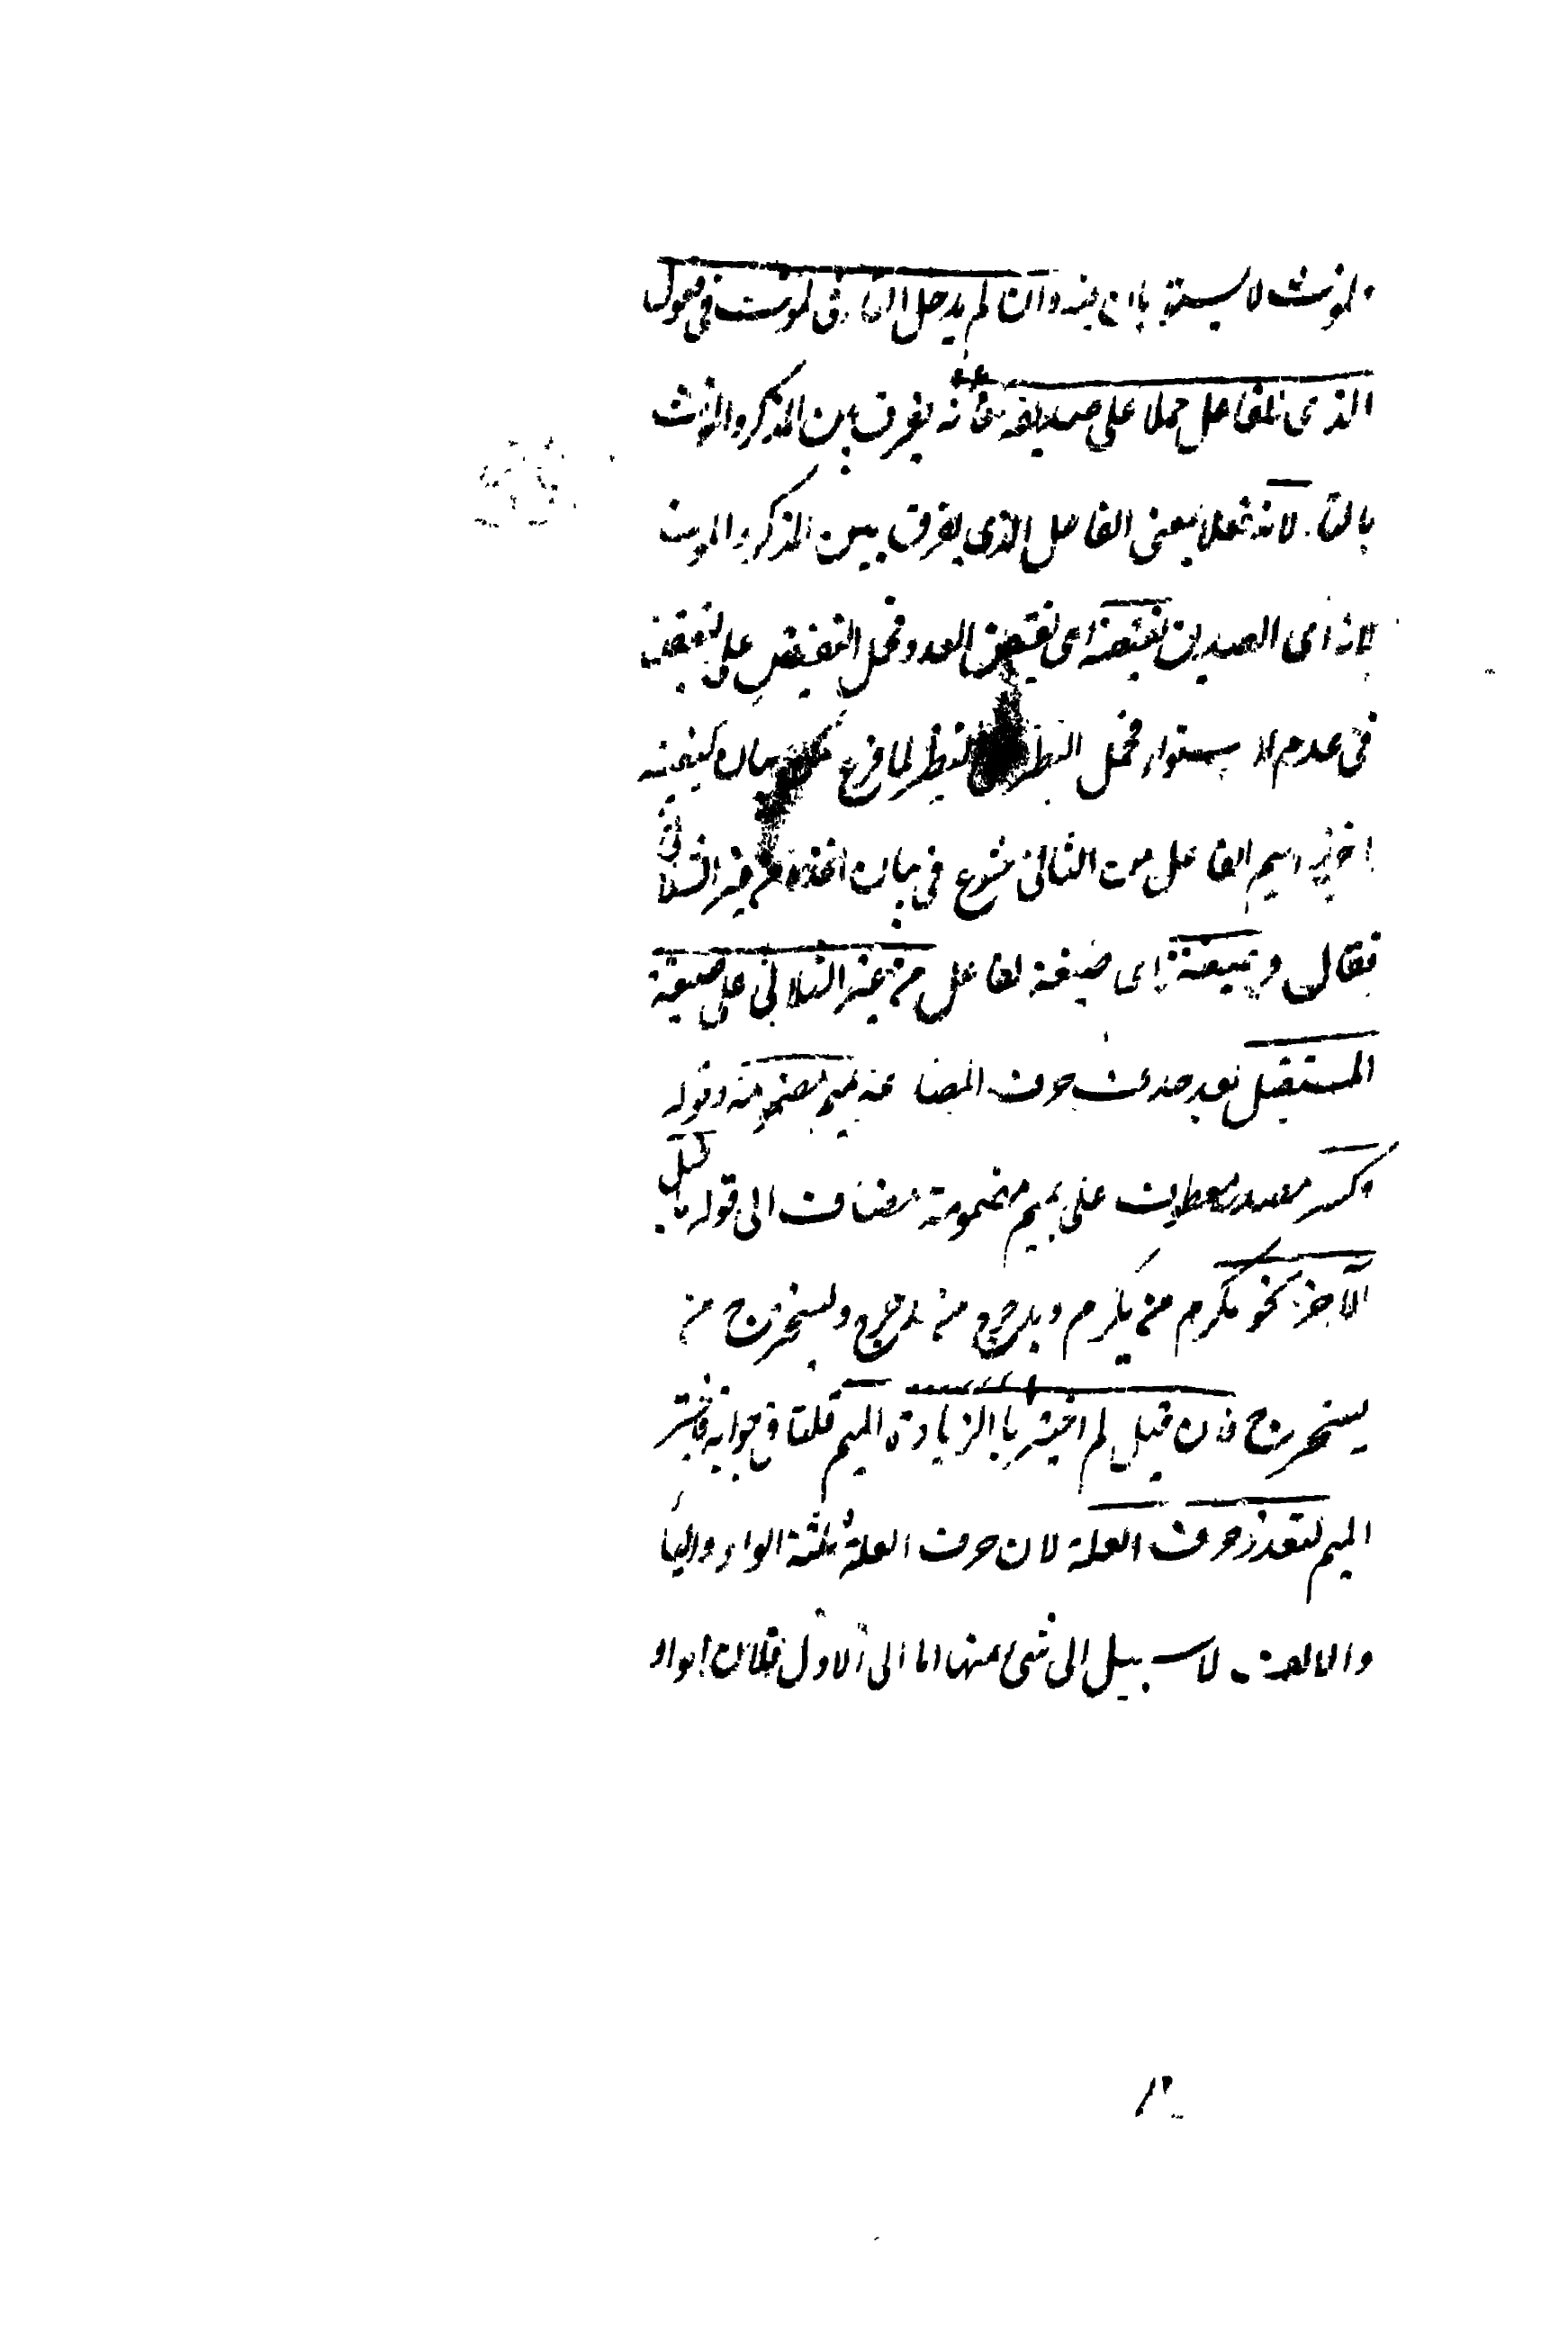 والمؤنث لا يستويان فيه وان لم يدخل التاء فى المؤنث فى فعول
الذى للفاعل حملا على صديقة فانه يفرق بين المذكر والمؤنث
بالتاء لانه فعيلا بمعنى الفاعل الذى يفرق بين المذكر والمونث
لانه اى الصديق نقيضه اى نقيض العدو فحمل النقيض على النقيض
فى عدم الاستواء فحمل النظير النظير لما فرغ بيان كيفية
اخذ اسم الفاعل من الثلاثى شرع فى بيان اخذه من غير الثلاثى
فقال وصيغته اى صيغة الفاعل من غير الثلاثى على صيغة
المستقبل بعد حذف حرف المضارعة بميم مضمومة وقوله
وكسر مصدر معطوف على بميم مضمومة مضاف الى قوله ما قبل
الآخر نحو مكرم من يكرم ومدحرج من يدحرج ومستخرج من
يستخرج فان قيل لم اختير با الزيادة الميم قلنا فى جوابه فاختير
الميم لتعذر حرف العلة لان حرف العلة ثلثة الواو والياء
والالف لا سبيل الى شئ منها اما الى الاول فلان الواو